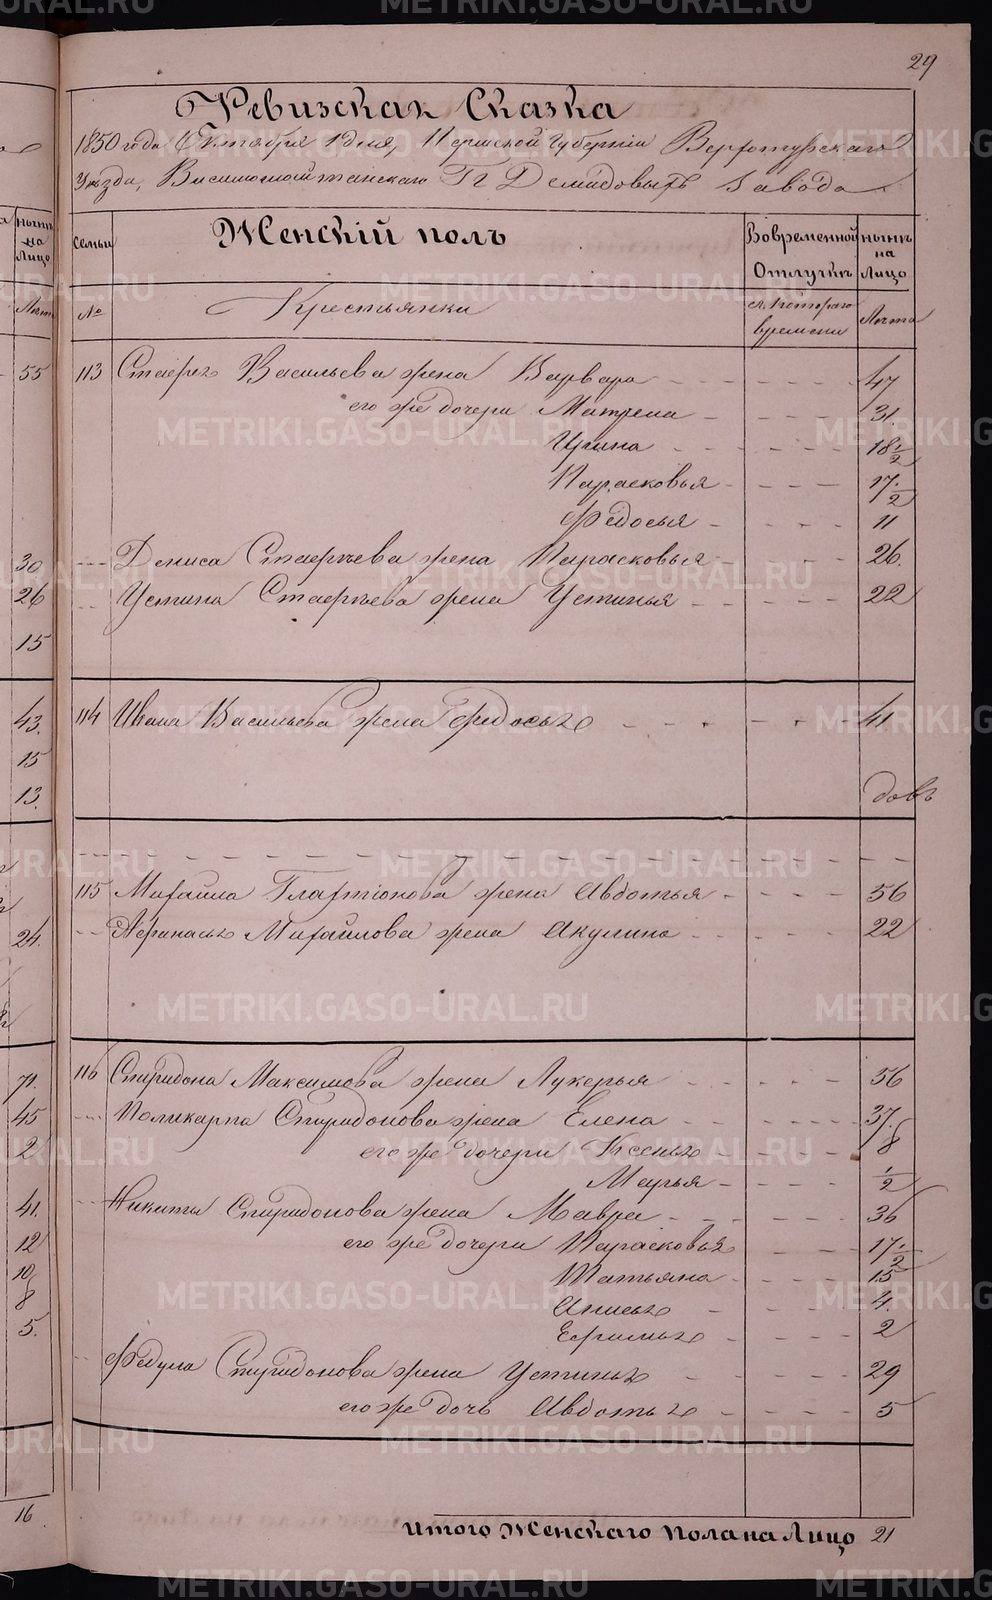 29
Ревизская Сказка
1850 года Октября 1 дня, Пермской Губернии Верхотурскаго
Уѣзда, Висимошайтанскаго Гг Демидовыхъ Завода
ныне на Лицо
Семьи Женскій полъ Вовременной Отлучкѣ ныне на Лицо
Лѣта
№ Крестьянки съ котораго времени Лѣта
55 113 Стаерея Васильева жена Варвара 47
его же дочери Матрена 31.
Ирина 18 1/2
Парасковья 17 1/2
Федосья 11
30 Дениса Стаерѣева жена Парасковья 26.
26 Устина Стаерѣева жена Устинья 22
15
43. 114 Ивана Васильева жена Федосья 41.
15
13. довъ
115 Михаила Платионова жена Авдотья 56
24. Афанасья Михайлова жена Акулина 22
71. 116 Спиридона Максимова жена Лукерья 56
45 Поликарпа Спиридонова жена Елена 37.
2 его же дочери Ксенья 8
Марья 1/2
41. Никиты Спиридонова жена Мавра 36
12 его же дочери Парасковья 17 1/2
10 Татьяна 15
8 Анисья 4.
5. Ефимья 2
Федула Спиридонова жена Устинья 29
его же дочь Авдотья 5
16 Итого Женскаго Пола на Лицо 21
METRIKI.GASO-URAL.RU